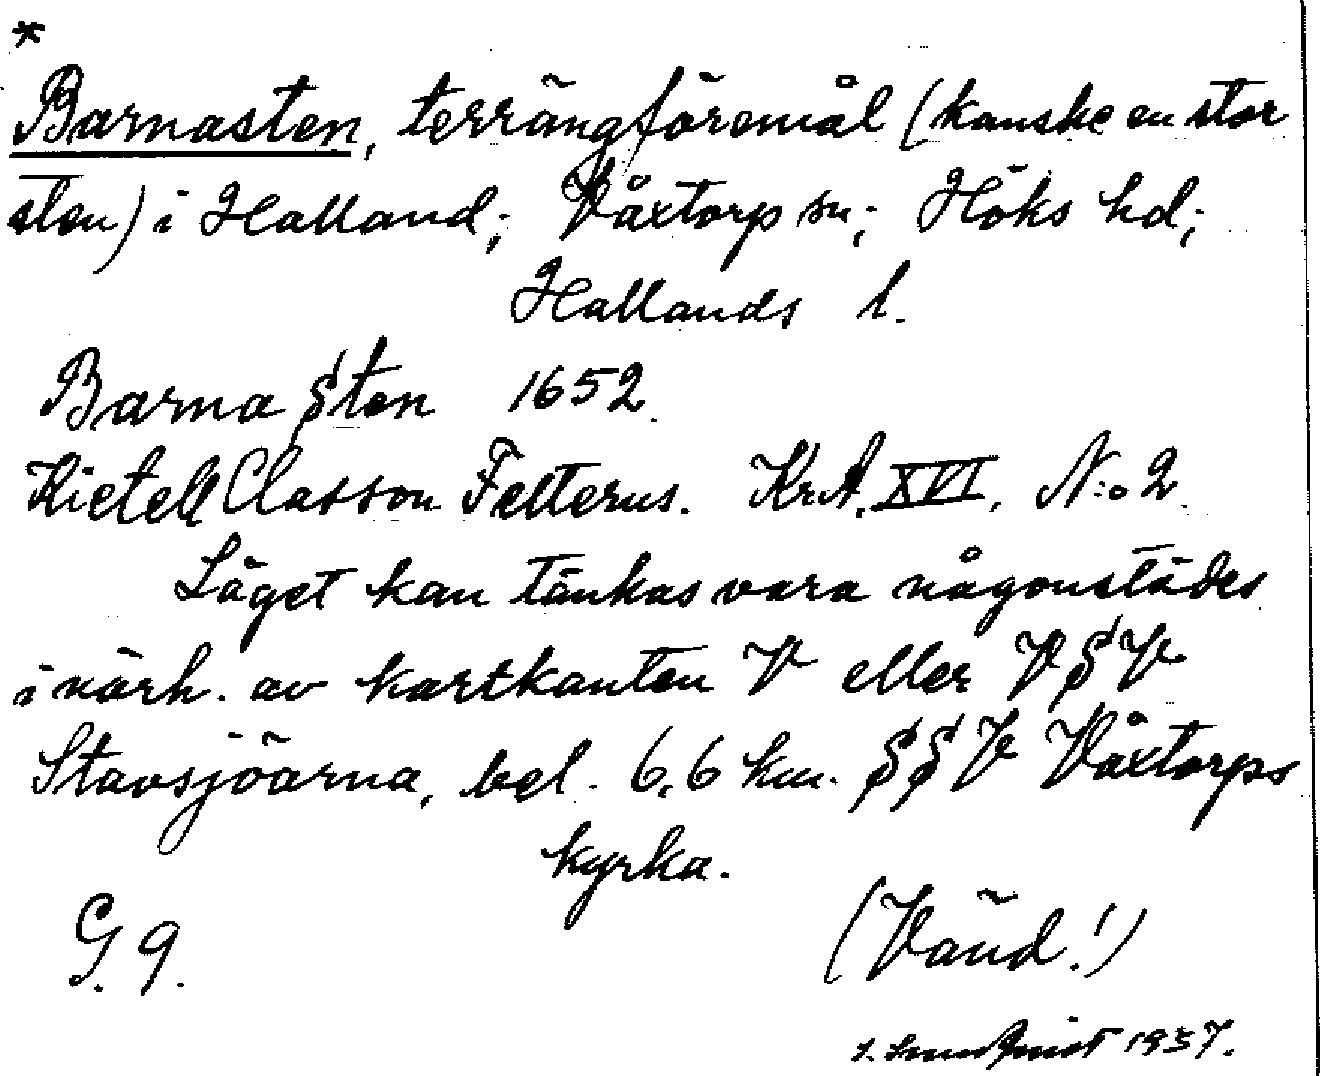 *
Barnasten, terrängföremål (kanske en stor
sten) i Halland; Våxtorp sn; Höks hd;
Hallands l.
Barna Sten 1652.
Kietell Classon Felterus. KrA. XVI. N:o 2.
Läget kan tänkas vara någonstädes
i närh. av kartkanten V eller VSV
Stavsjöarna, bel. 6,6 km. SSV Våxtorps
kyrka.
G. 9.
(Vänd!)
1937.